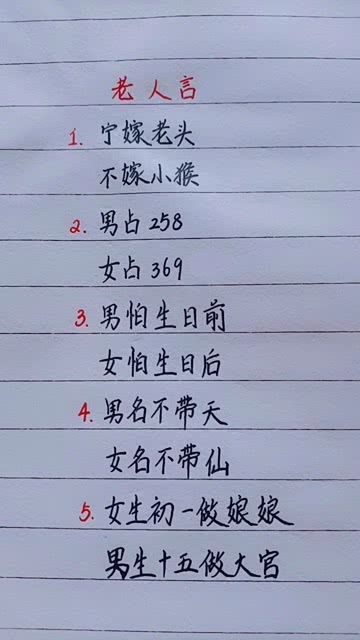 老人言
1. 宁嫁老头
不嫁小猴
2. 男占258
女占369
3. 男怕生日前
女怕生日后
4. 男名不带天
女名不带仙
5. 女生初一做娘娘
男生十五做大官